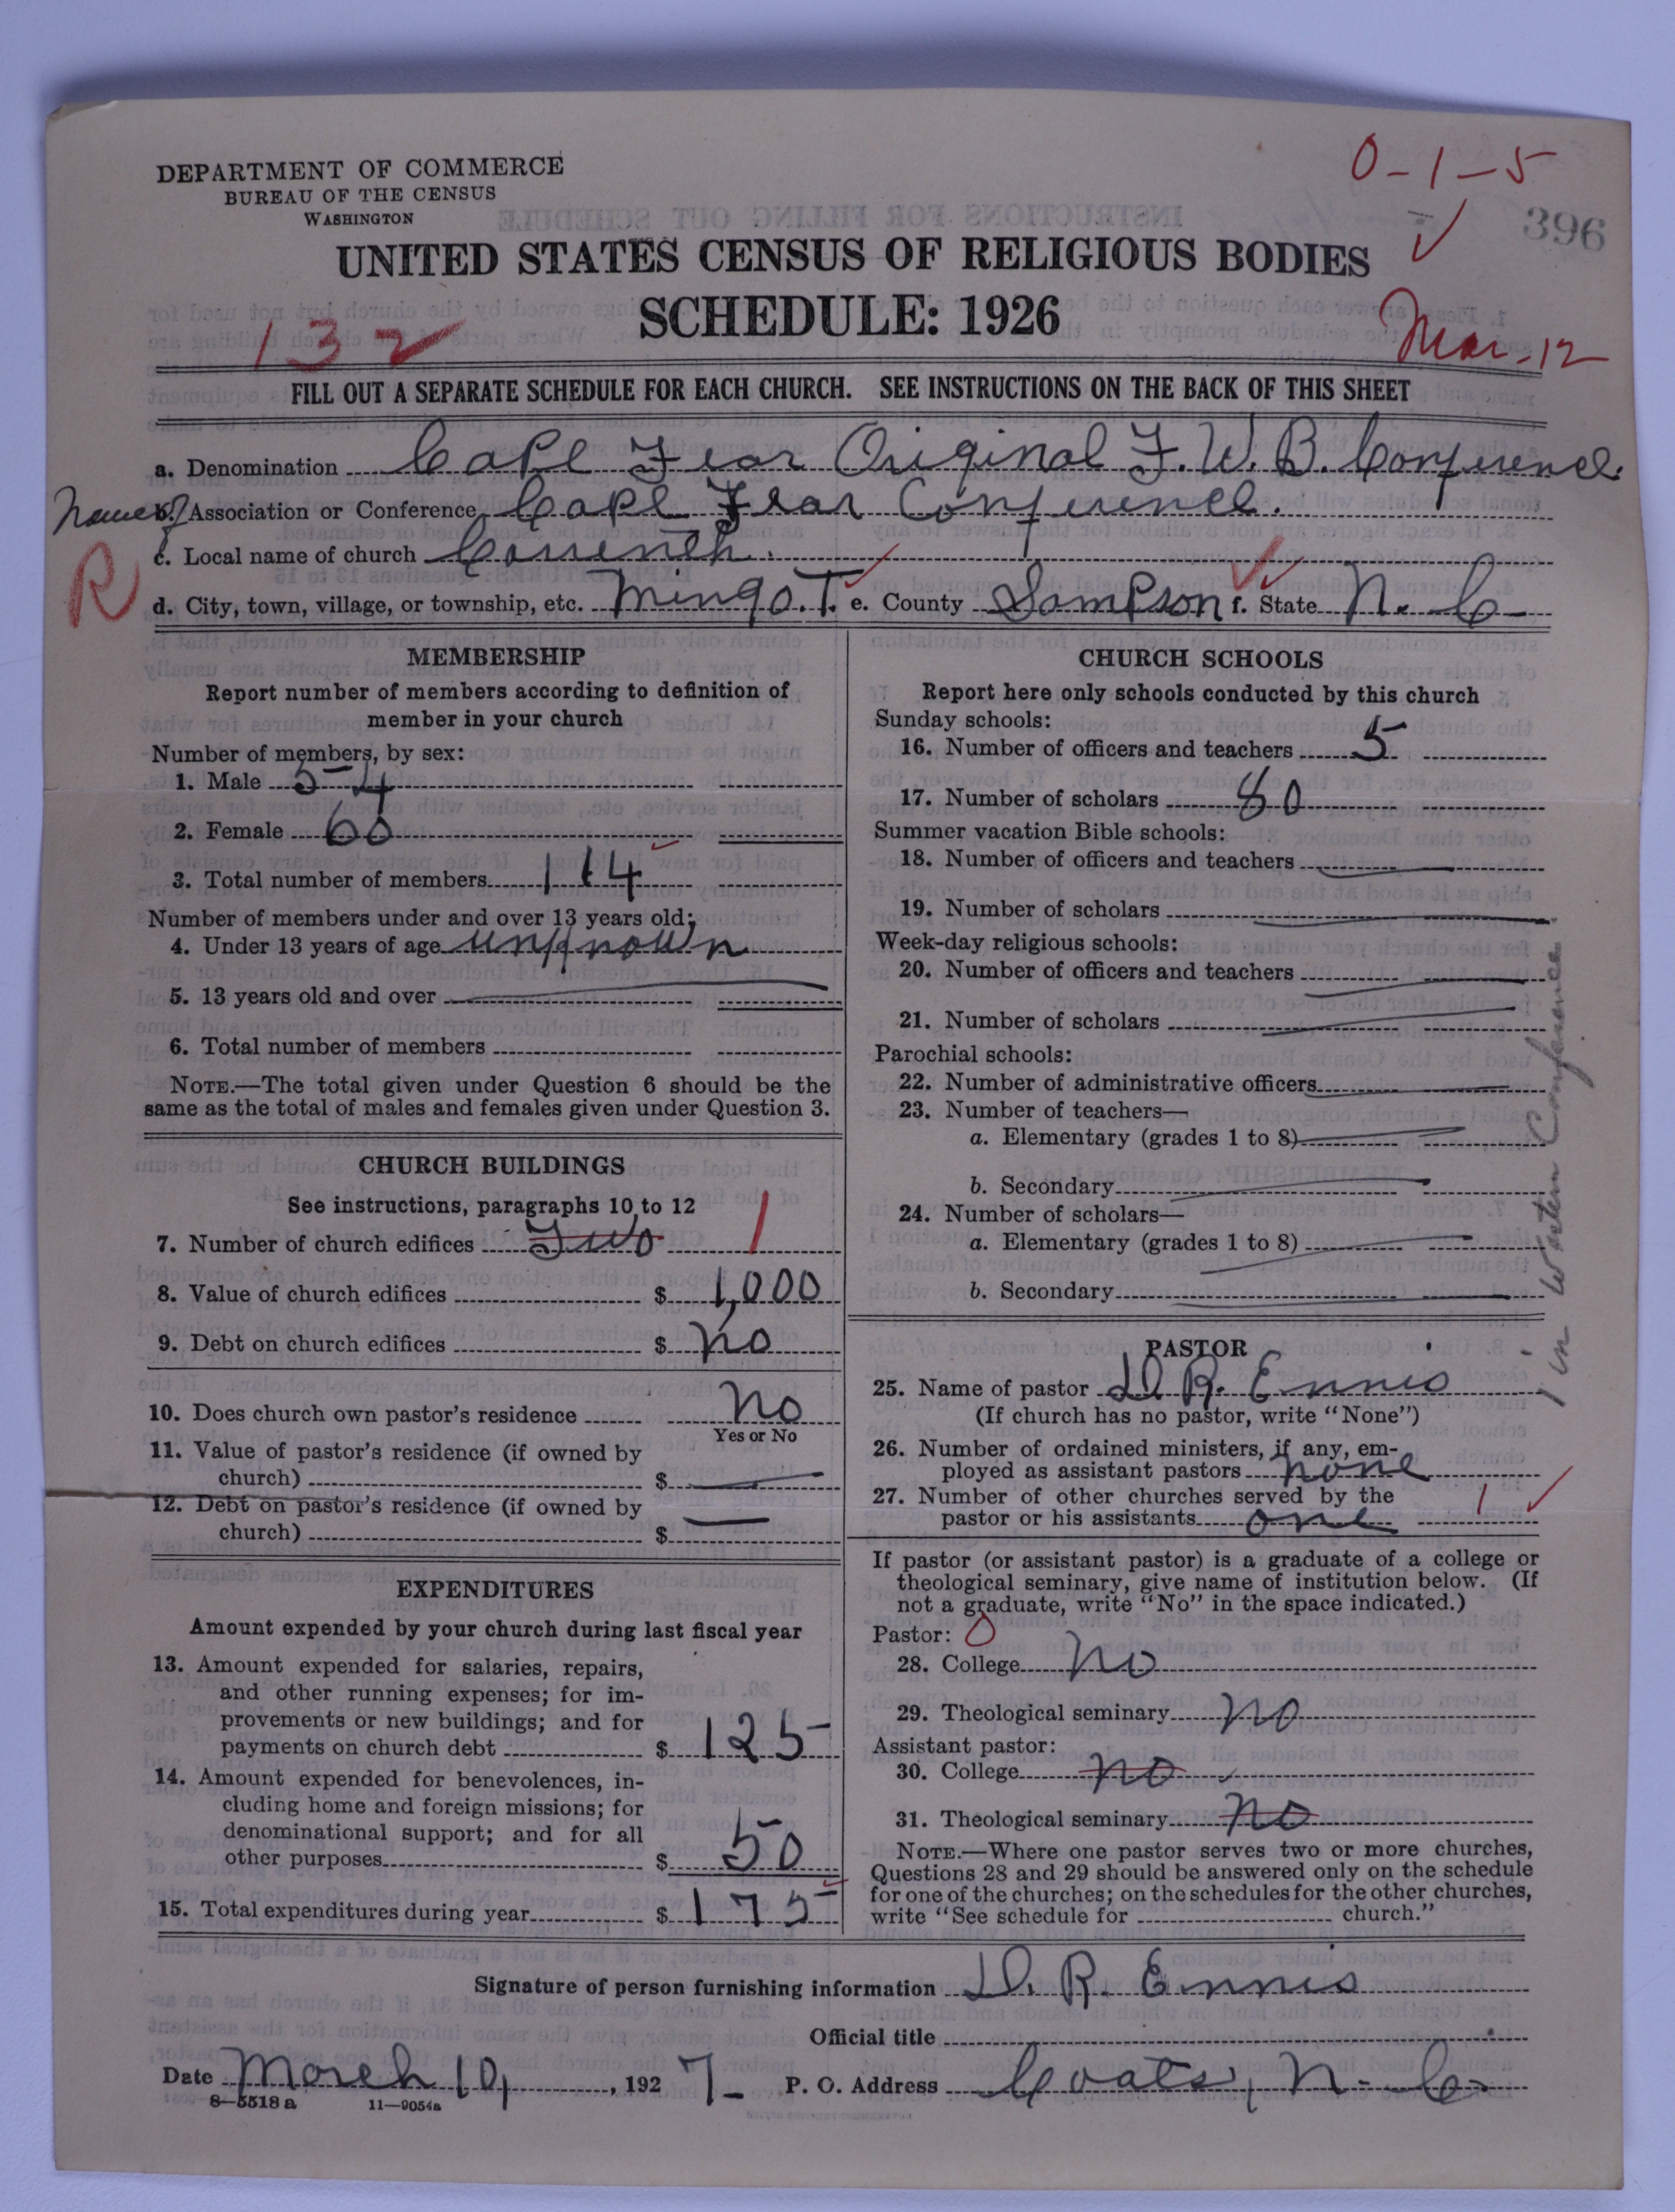 0-1-5
396
DEPARTMENT OF COMMERCE
BUREAU OF THE CENSUS
WASHINGTON
UNITED STATES CENSUS OF RELIGIOUS BODIES
SCHEDULE: 1926
132
Mar-12
FILL OUT A SEPARATE SCHEDULE FOR EACH CHURCH. SEE INSTRUCTIONS ON THE BACK OF THIS SHEET
a. Denomination Cape Fear Original F.W.B. Conference.
Name of b. Association or Conference Cape Fear Conference.
c. Local name of church
R
d. City, town, village, or township, etc. Mingo.T. e. County Sampson f. State N. C-
MEMBERSHIP
Report number of members according to definition of
member in your church
Number of members, by sex:
1. Male 54
2. Female 60
3. Total number of members 114
Number of members under and over 13 years old:
4. Under 13 years of age unknown
5. 13 years old and over
6. Total number of members
NOTE.—The total given under Question 6 should be the
same as the total of males and females given under Question 3.
CHURCH BUILDINGS
See instructions, paragraphs 10 to 12
7. Number of church edifices Two 1
8. Value of church edifices $ 1,000
9. Debt on church edifices $ no
10. Does church own pastor's residence no
Yes or No
11. Value of pastor's residence (if owned by
church) $ —
12. Debt on pastor's residence (if owned by
church) $ —
EXPENDITURES
Amount expended by your church during last fiscal year
13. Amount expended for salaries, repairs,
and other running expenses; for im-
provements or new buildings; and for
payments on church debt $ 125
14. Amount expended for benevolences, in-
cluding home and foreign missions; for
denominational support; and for all
other purposes $ 50
15. Total expenditures during year $ 175
CHURCH SCHOOLS
Report here only schools conducted by this church
Sunday schools:
16. Number of officers and teachers 5
17. Number of scholars 80
Summer vacation Bible schools:
18. Number of officers and teachers
19. Number of scholars
Week-day religious schools:
20. Number of officers and teachers
21. Number of scholars
Parochial schools:
22. Number of administrative officers
23. Number of teachers—
a. Elementary (grades 1 to 8)
b. Secondary
24. Number of scholars—
a. Elementary (grades 1 to 8)
b. Secondary
1 in Western Conference
PASTOR
25. Name of pastor D. R. Ennis
(If church has no pastor, write "None")
26. Number of ordained ministers, if any, em-
ployed as assistant pastors none
27. Number of other churches served by the
pastor or his assistants one 1
If pastor (or assistant pastor) is a graduate of a college or
theological seminary, give name of institution below. (If
not a graduate, write "No" in the space indicated.)
Pastor: 0
28. College no
29. Theological seminary no
Assistant pastor:
30. College no
31. Theological seminary no
NOTE.—Where one pastor serves two or more churches,
Questions 28 and 29 should be answered only on the schedule
for one of the churches; on the schedules for the other churches,
write "See schedule for church."
Signature of person furnishing information D. R. Ennis
Official title
Date March 10, 1927- P. O. Address Coats, N. C.
8—5518a 11—9054a